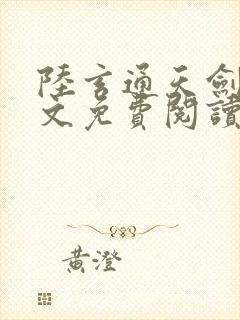 陸玄通天劍
文免費閱讀
黃澄